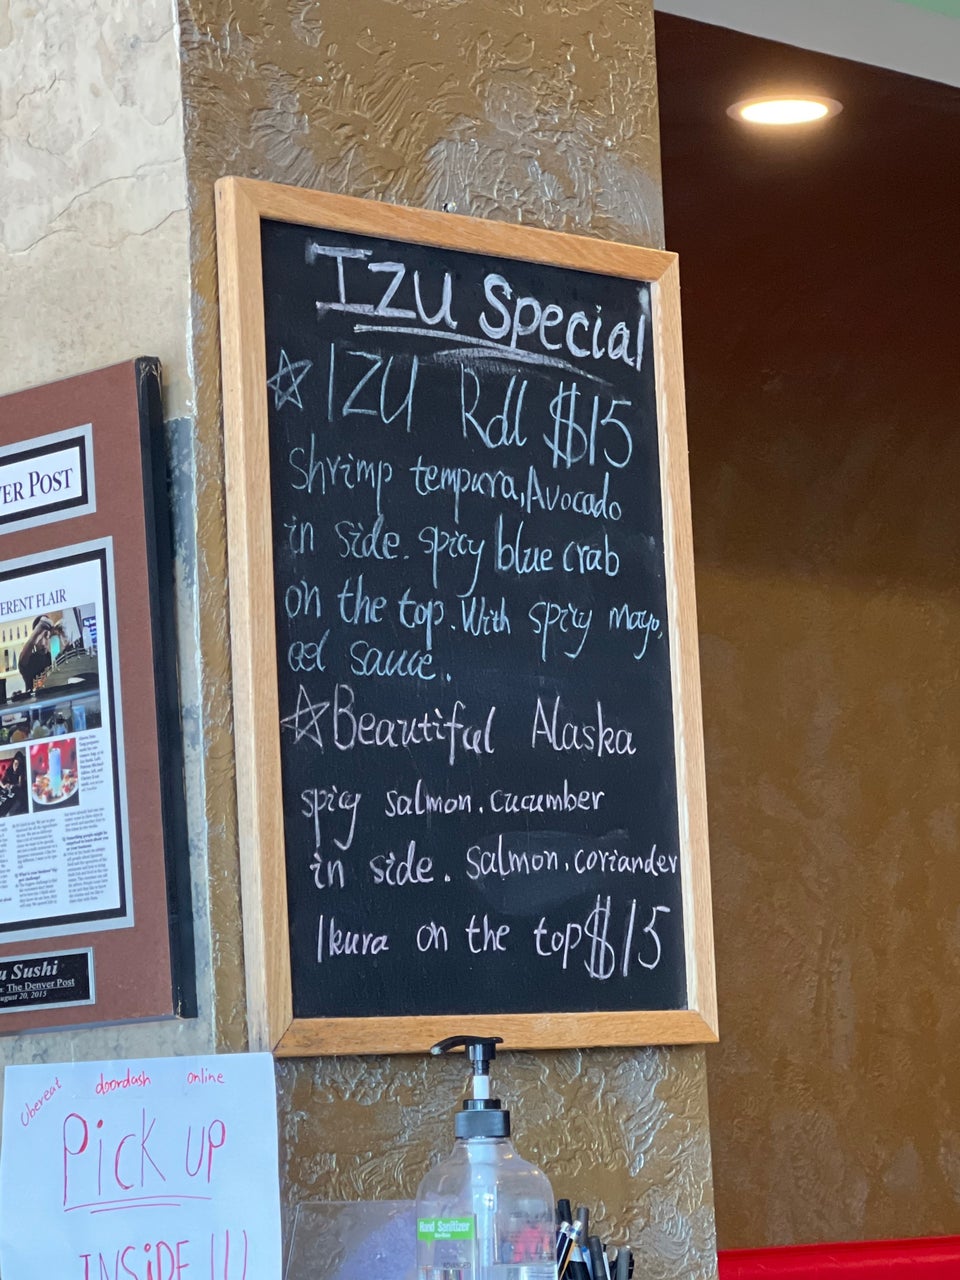 IZU Special
IZU Roll $15
Shrimp tempura, Avocado
in side. spicy blue crab
on the top. With spicy mayo,
eel sauce.
Beautiful Alaska
spicy salmon. cucumber
in side. salmon. coriander
Ikura on the top $15
ER POST
ERENT FLAIR
u Sushi
The Denver Post
ugust 20, 2015
Ubereat doordash online
Pick up
INSIDE !!!
Hand Sanitizer
ADVANCED